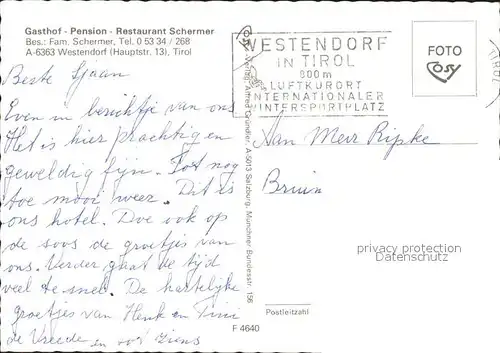 Gasthof - Pension - Restaurant Schermer
Bes.: Fam. Schermer, Tel. 0 53 34 / 268
A-6363 Westendorf (Hauptstr. 13), Tirol
Beste Sjaan
Even een berichtje van ons
Het is hier prachtig en
geweldig fijn. Tot nog
toe mooi weer. Dit is
ons hotel. Doe ook op
de soos de groetjes van
ons. Verder gaat de tijd
veel te snel. De hartelijke
groetjes van Henk en Tini
de Vreede en tot ziens
Verlag Alfred Gründler, A-5013 Salzburg, Münchner Bundesstr. 156
WESTENDORF
IN TIROL
800 m
LUFTKURORT
INTERNATIONALER
WINTERSPORTPLATZ
FOTO
COSY
TIROL
Aan Mevr Ripke
Bruin
privacy protection
Datenschutz
Postleitzahl
F 4640